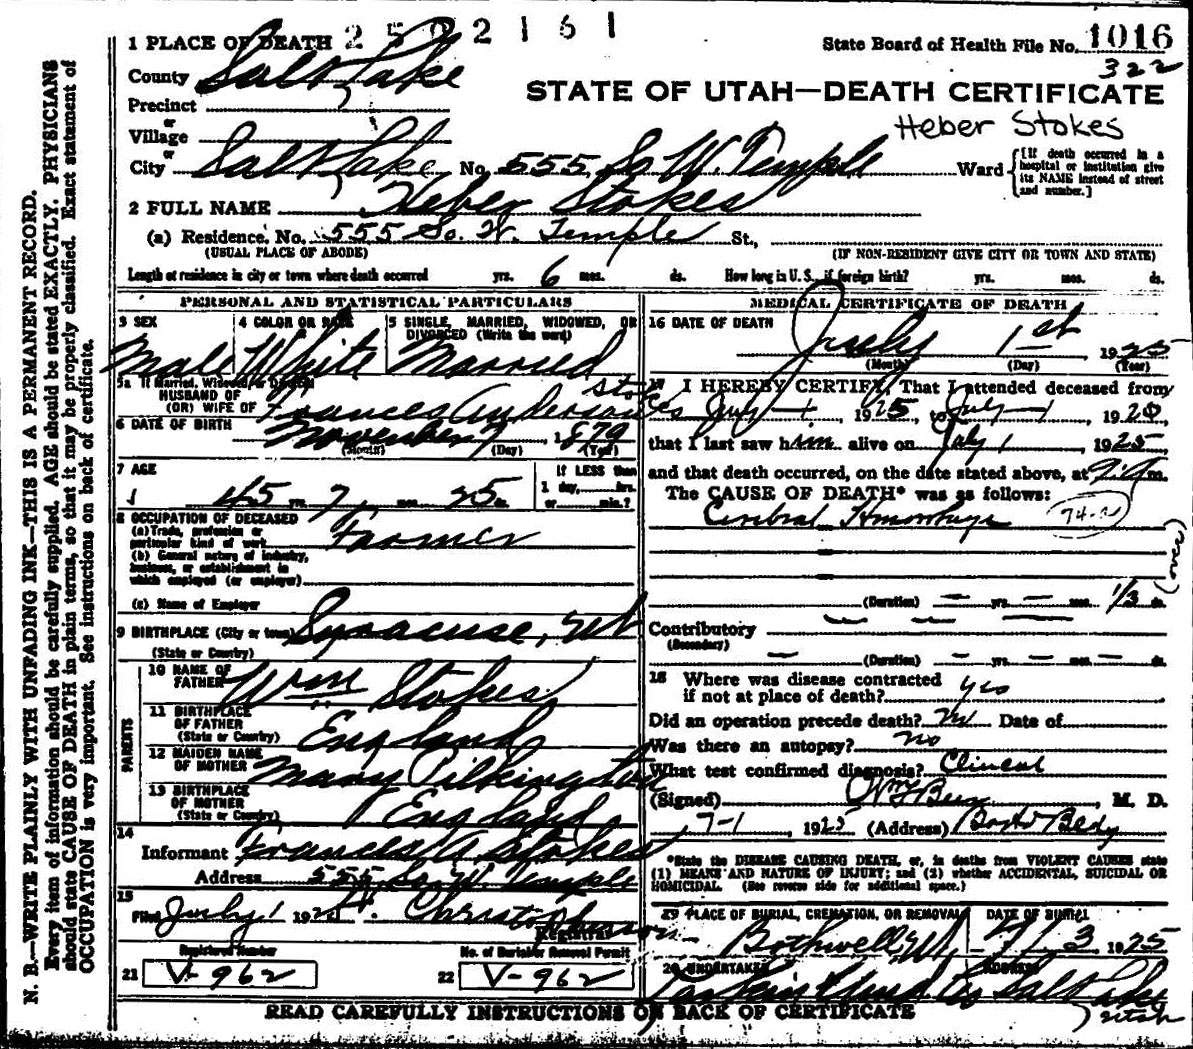 2502161
State Board of Health File No. 1016
322
1 PLACE OF DEATH
County Salt Lake
STATE OF UTAH—DEATH CERTIFICATE
Precinct
or
Heber Stokes
Village
or
City Salt Lake No. 555 So W. Temple Ward
[If death occurred in a hospital or institution give its NAME instead of street and number.]
2 FULL NAME Heber Stokes
(a) Residence. No. 555 So. W. Temple St.,
(USUAL PLACE OF ABODE) (IF NON-RESIDENT GIVE CITY OR TOWN AND STATE)
Length of residence in city or town where death occurred yrs. 6 mos. ds. How long in U. S., if foreign birth? yrs. mos. ds.
PERSONAL AND STATISTICAL PARTICULARS
3 SEX 4 COLOR OR RACE 5 SINGLE, MARRIED, WIDOWED, OR DIVORCED (Write the word)
Male White Married
5a If Married, Widowed, or Divorced
HUSBAND OF
(OR) WIFE OF Frances Anderson Stokes
6 DATE OF BIRTH November 7, 1879
(Month) (Day) (Year)
7 AGE If LESS than
1 day, hrs.
45 yrs. 7 mos. 25 ds. or min.?
8 OCCUPATION OF DECEASED
(a) Trade, profession or
particular kind of work Farmer
(b) General nature of industry,
business, or establishment in
which employed (or employer)
(c) Name of Employer
9 BIRTHPLACE (City or town) Syracuse, Ut
(State or Country)
PARENTS
10 NAME OF
FATHER Wm Stokes
11 BIRTHPLACE
OF FATHER
(State or Country) England
12 MAIDEN NAME
OF MOTHER Mary Pilkington
13 BIRTHPLACE
OF MOTHER
(State or Country) England
14
Informant Frances A Stokes
Address 555 So. W. Temple
15
Filed July 1 192
Registrar
Registered Number No. of Burial or Removal Permit
21 V-962 22 V-962
MEDICAL CERTIFICATE OF DEATH
16 DATE OF DEATH
July 1st, 1925
(Month) (Day) (Year)
17 I HEREBY CERTIFY, That I attended deceased from
July-1 1925, to July-1, 192
that I last saw him alive on July 1 1925,
and that death occurred, on the date stated above, at 9. m.
The CAUSE OF DEATH* was as follows:
Cerebral Hemorhage 74-a
(over)
(Duration) — yrs. — mos. 1/3 ds.
Contributory
(Secondary)
— (Duration) — yrs. — mos. — ds.
18 Where was disease contracted
if not at place of death? yes
Did an operation precede death? no Date of
Was there an autopsy? no
What test confirmed diagnosis? Clinical
(Signed) , M. D.
7-1, 1925 (Address)
*State the DISEASE CAUSING DEATH, or, in deaths from VIOLENT CAUSES state
(1) MEANS AND NATURE OF INJURY; and (2) whether ACCIDENTAL, SUICIDAL OR
HOMICIDAL. (See reverse side for additional space.)
19 PLACE OF BURIAL, CREMATION, OR REMOVAL DATE OF BURIAL
Bothwell, Ut. 7/3 1925
20 UNDERTAKER ADDRESS
Salt Lake
Utah
READ CAREFULLY INSTRUCTIONS ON BACK OF CERTIFICATE
N. B.—WRITE PLAINLY WITH UNFADING INK—THIS IS A PERMANENT RECORD.
Every item of information should be carefully supplied. AGE should be stated EXACTLY. PHYSICIANS
should state CAUSE OF DEATH in plain terms, so that it may be properly classified. Exact statement of
OCCUPATION is very important. See instructions on back of certificate.